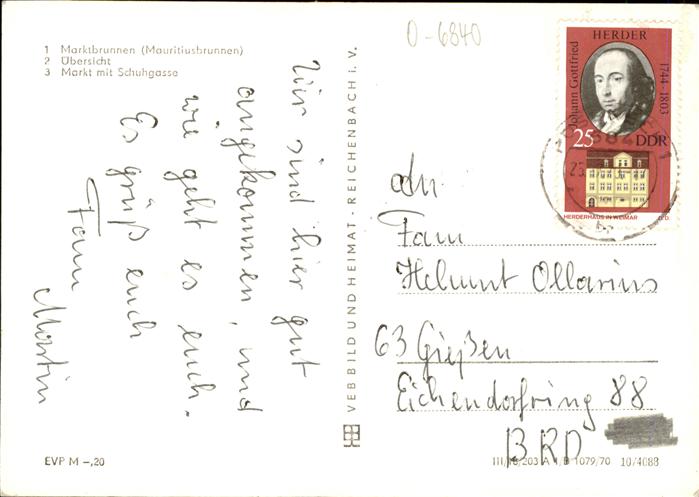 1 Marktbrunnen (Mauritiusbrunnen)
2 Übersicht
3 Markt mit Schuhgasse
Wir sind hier gut
angekommen, und
wie geht es euch.
Es grüß euch
Fam
Martin
EVP M –,20
VEB BILD UND HEIMAT · REICHENBACH i. V.
0-6840
Johann Gottfried
HERDER
1744 · 1803
25
DDR
HERDERHAUS IN WEIMAR
An
Fam
Helmut Ollarius
63 Gießen
Eichendorfring 88
BRD
III/18/203 A 1/B 1079/70 10/4088